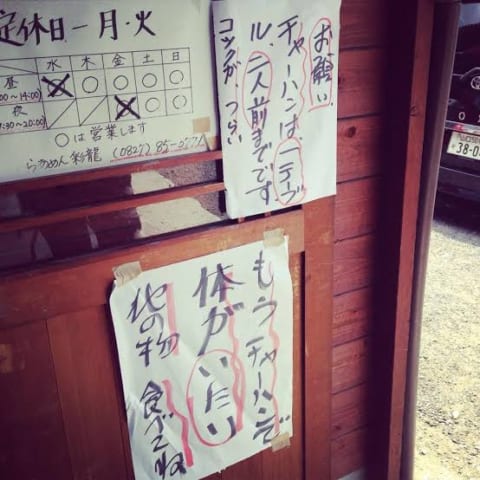 定休日－月・火
水 木 金 土 日
昼
00〜14:00
夜
:30〜20:00
○は営業します
らぁめん 彩龍 (0827)
お願い
チャーハンは一テーブ
ル、二人前までです
コックが、つらい
もうチャーハンで
体がいたい
他の物 食べてね
38-0